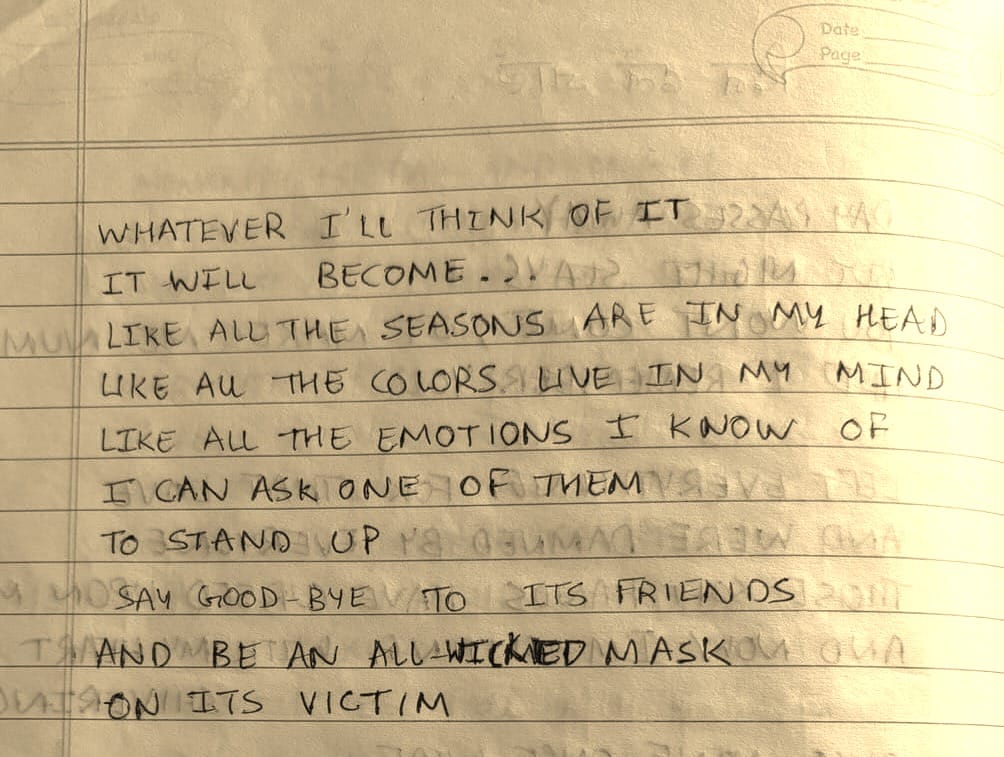 Date
Page
WHATEVER I'LL THINK OF IT
IT WILL BECOME..
LIKE ALL THE SEASONS ARE IN MY HEAD
LIKE ALL THE COLORS LIVE IN MY MIND
LIKE ALL THE EMOTIONS I KNOW OF
I CAN ASK ONE OF THEM
TO STAND UP
SAY GOOD-BYE TO ITS FRIENDS
AND BE AN ALL-WICKED MASK
ON ITS VICTIM